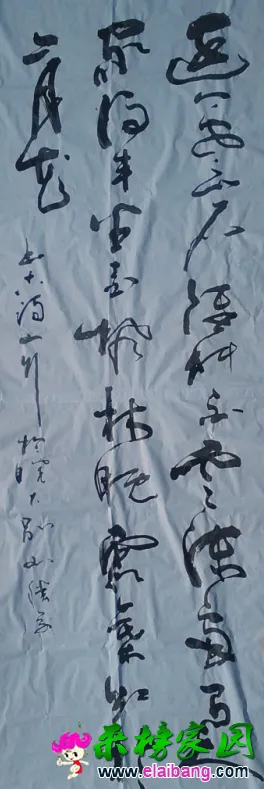 远上寒山石径斜白云深处有人
家停车坐爱枫林晚霜叶红于
二月花
山行
来榜家园
www.elaibang.com